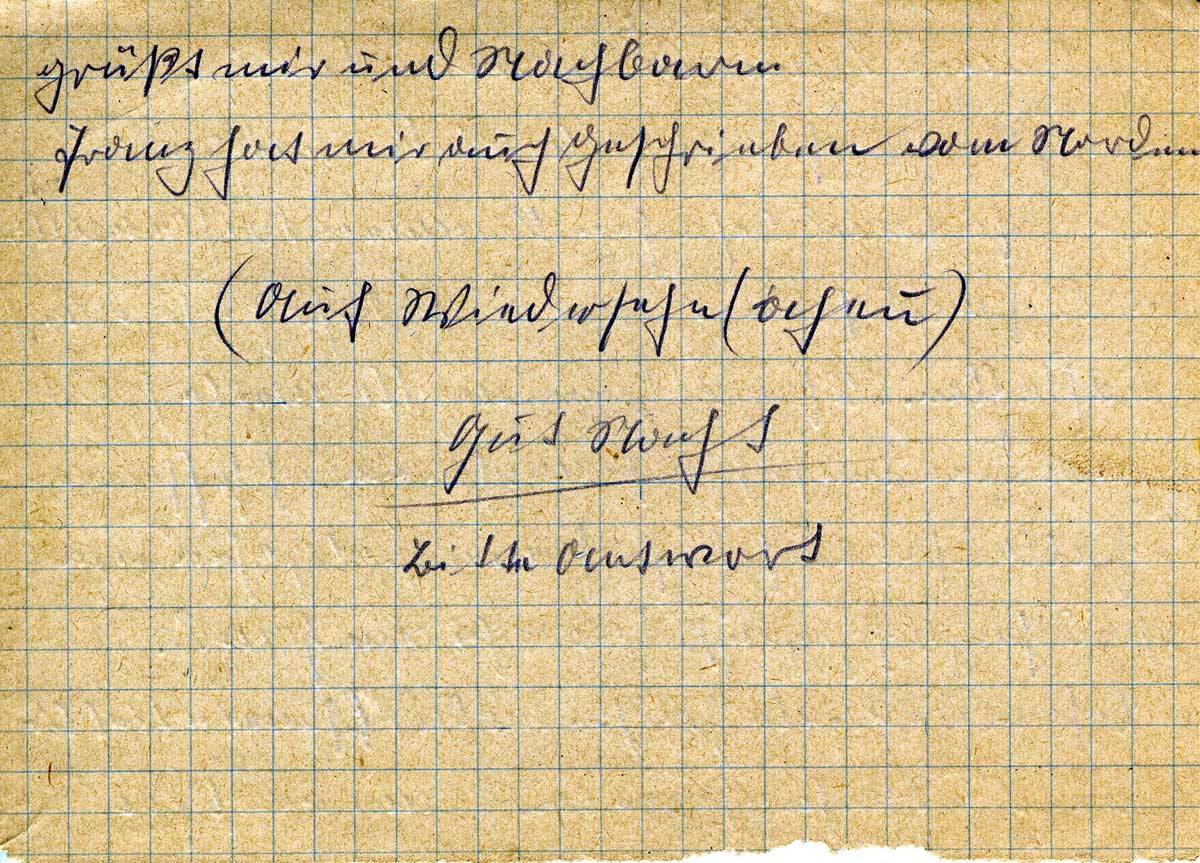 grüßt mir und Nachbarn
Franz hat mir auch geschrieben vom Norden
(Auf Wiedersehn (
Gut Nacht
Bitte Antwort